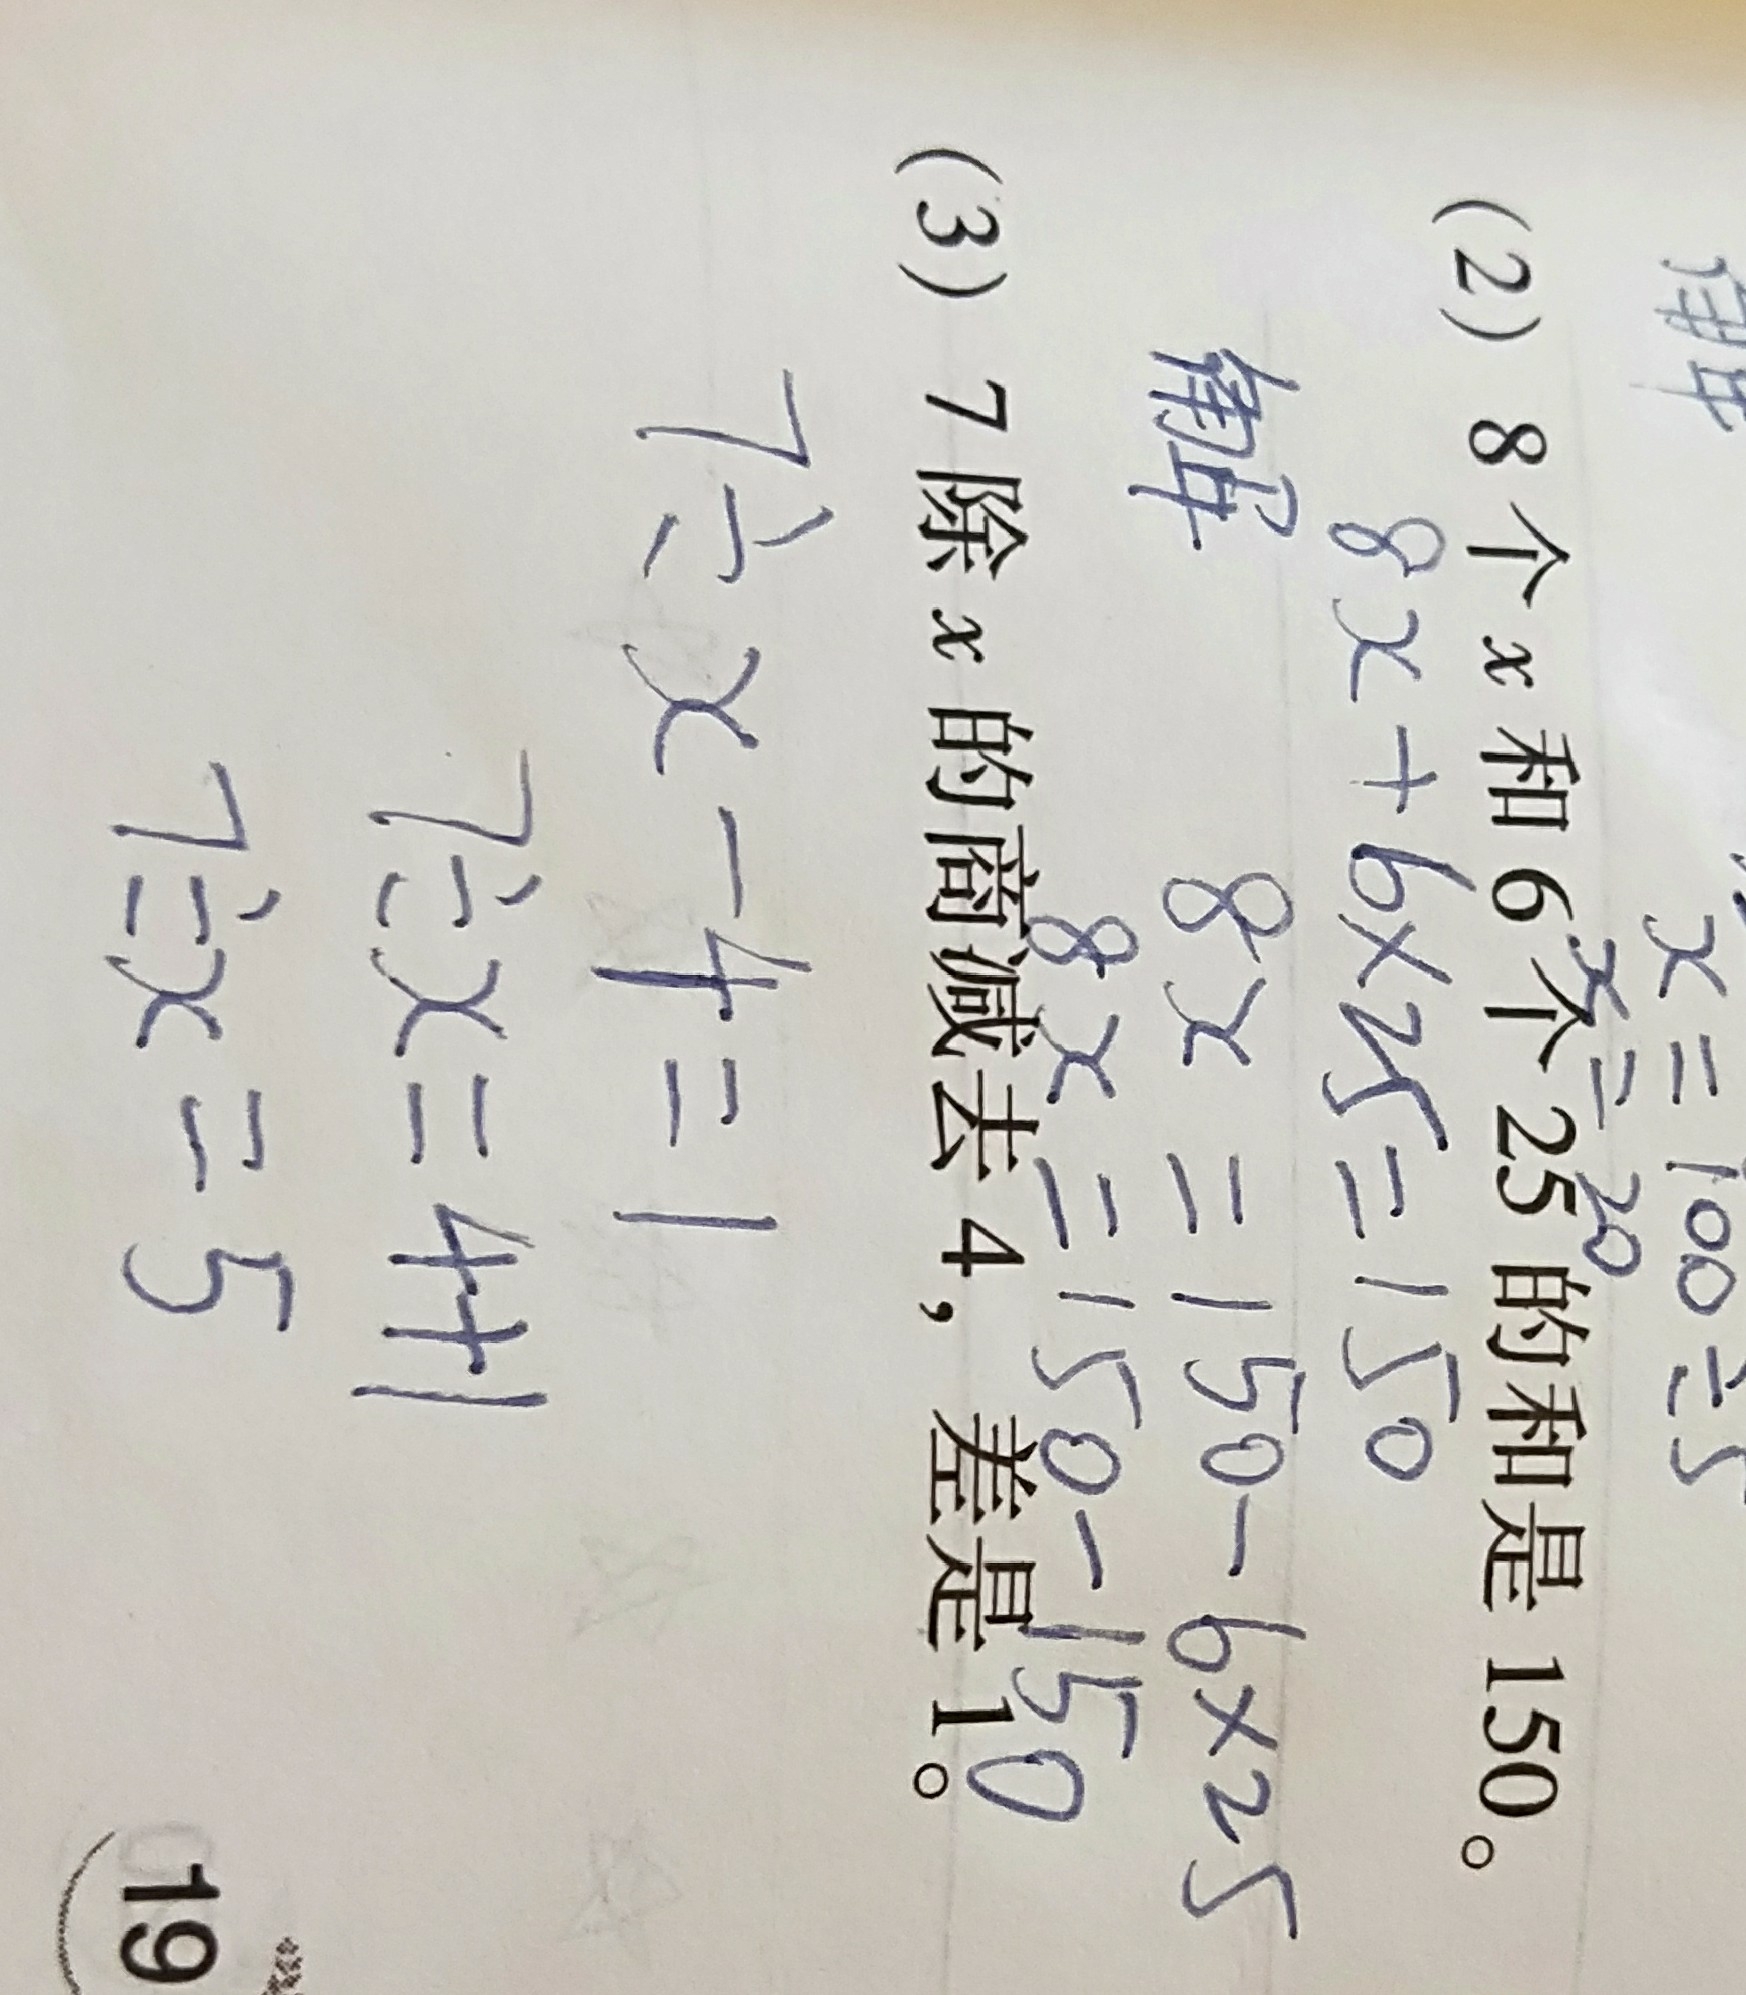 解
x=100÷5
x=20
(2) 8个x和6个25的和是150。
8x+6×25=150
解
8x=150-6×25
8x=150-150
(3) 7除x的商减去4，差是1。
7÷x-4=1
7÷x=4+1
7÷x=5
19